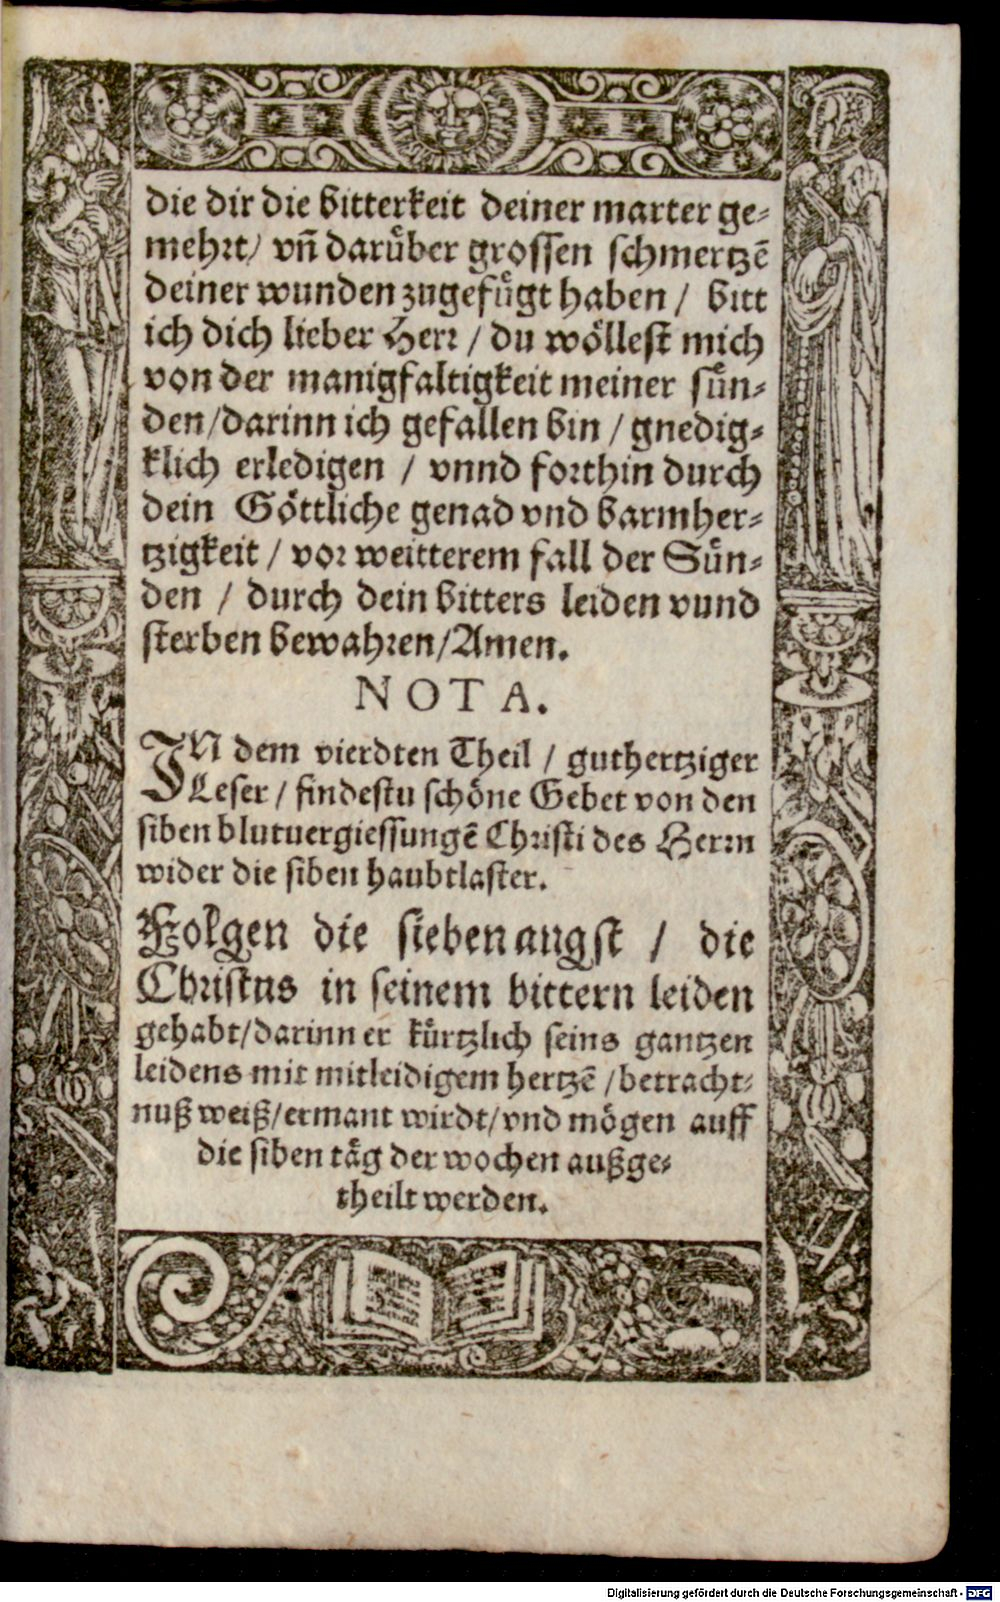 die dir die bitterkeit deiner marter ge⸗
mehrt/ vñ darüber grossen schmertzẽ
deiner wunden zugefügt haben / bitt
ich dich lieber Herr / du wöllest mich
von der manigfaltigkeit meiner sün⸗
den/darinn ich gefallen bin / gnedig⸗
klich erledigen / vnnd forthin durch
dein Göttliche genad vnd barmher⸗
tzigkeit / vor weitterem fall der Sün⸗
den / durch dein bitters leiden vund
sterben bewahren/Amen.
NOTA.
IN dem vierdten Theil / guthertziger
Leser / findestu schöne Gebet von den
siben blutuergiessungẽ Christi des Herrn
wider die siben haubtlaster.
Folgen die sieben angst / die
Christus in seinem bittern leiden
gehabt/darinn er kürtzlich seins gantzen
leidens mit mitleidigem hertzẽ /betracht⸗
nuß weiß/ermant wirdt/vnd mögen auff
die siben täg der wochen außge⸗
theilt werden.
Digitalisierung gefördert durch die Deutsche Forschungsgemeinschaft - DFG